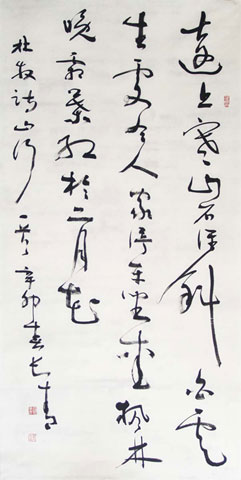 遠上寒山石徑斜白雲
生處有人家停車坐愛楓林
晚霜葉紅於二月花
杜牧詩山行一首辛卯春